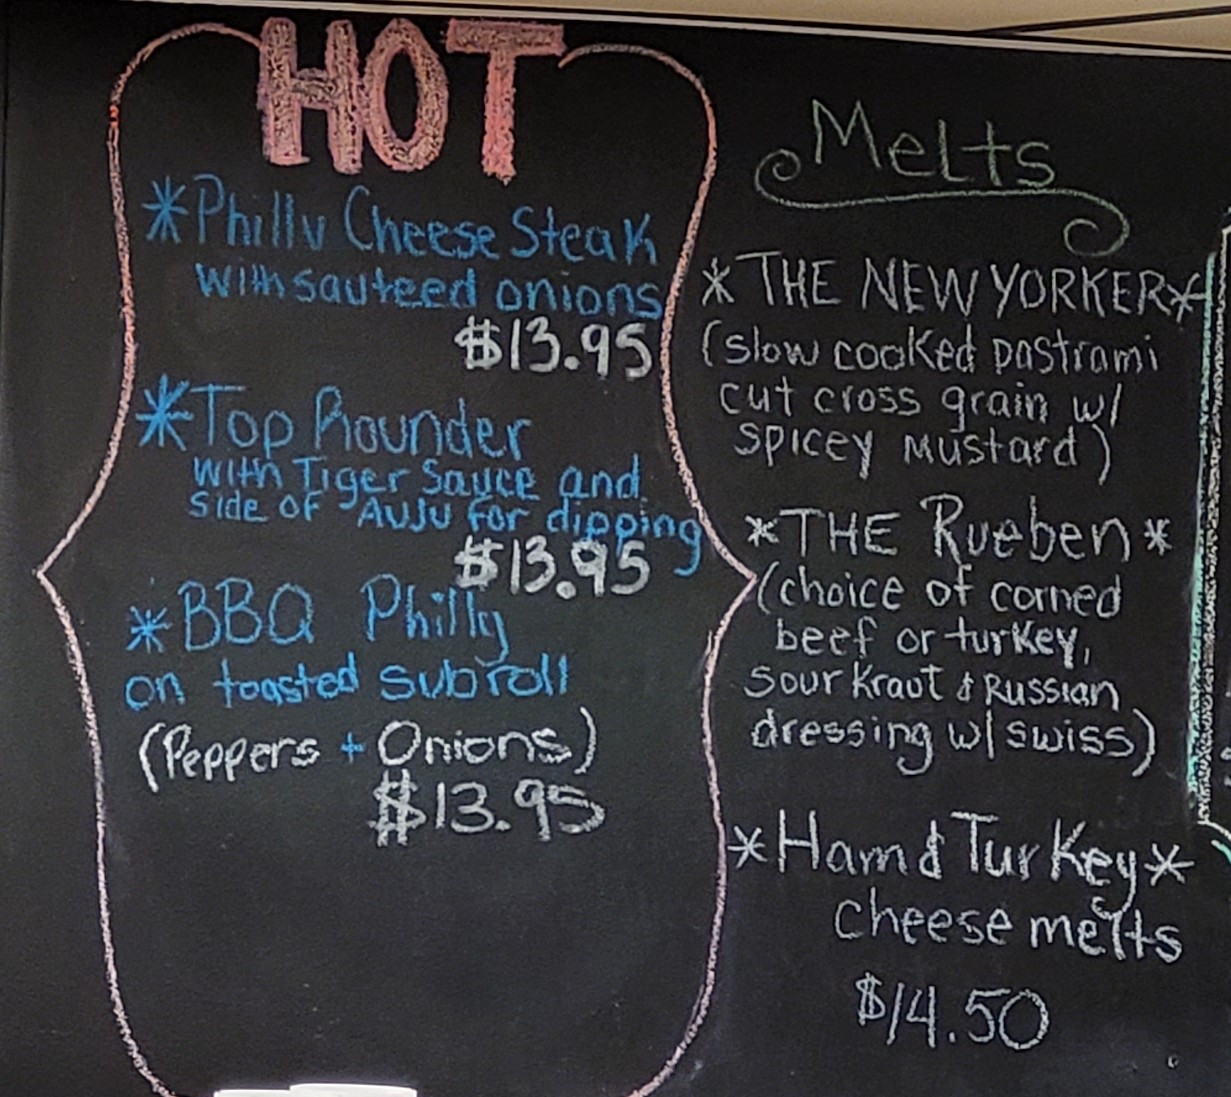 HOT
*Philly Cheese Steak
with sauteed onions
$13.95
*Top Rounder
with Tiger Sauce and
side of AUJU for dipping
$13.95
*BBQ Philly
on toasted subroll
(Peppers + Onions)
$13.95
Melts
*THE NEW YORKER*
(slow cooked pastrami
cut cross grain w/
spicey mustard)
*THE Rueben*
(choice of corned
beef or turkey,
sour kraut & Russian
dressing w/ swiss)
*Ham & Turkey*
cheese melts
$14.50